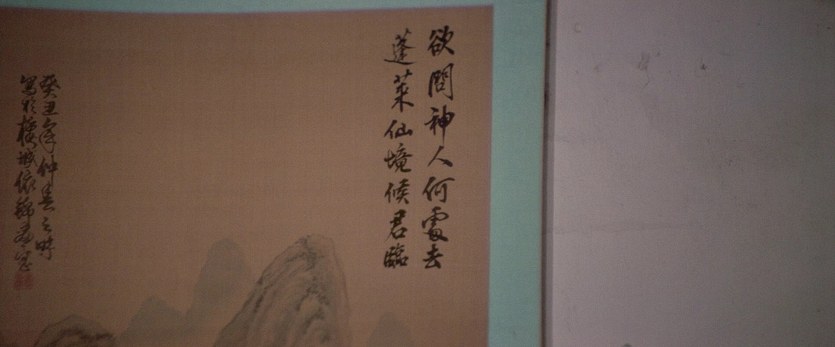 欲問神人何處去
蓬萊仙境候君臨
癸丑年仲春之時
寫於橫濱